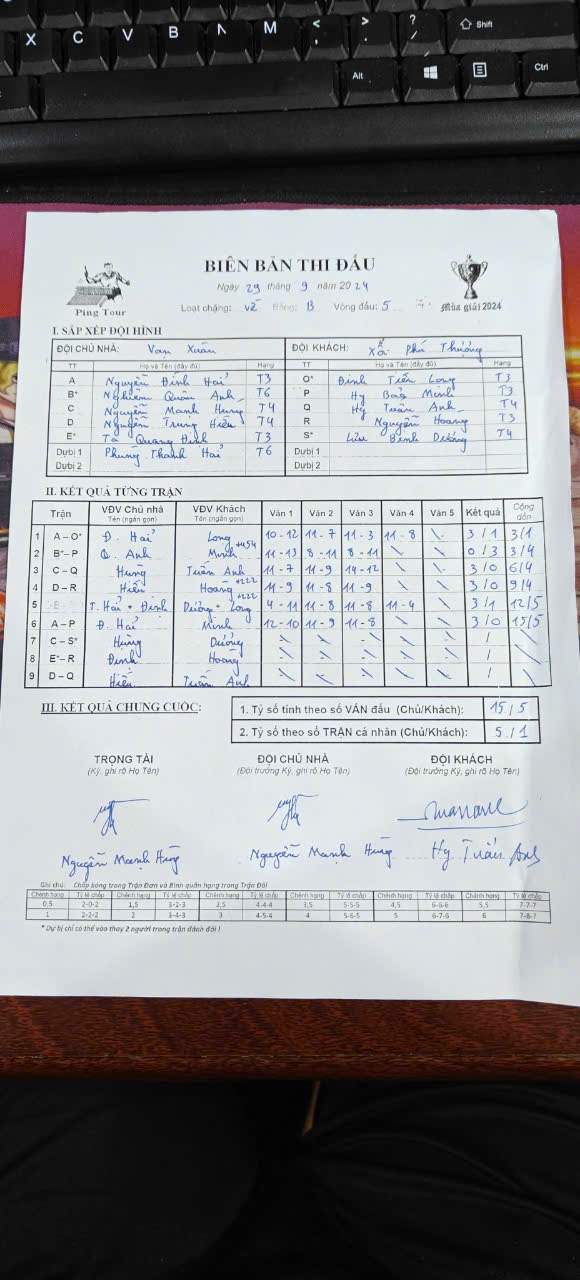 Shift
X C V B N M < , > . ? /
Alt Ctrl
BIÊN BẢN THI ĐẤU
Ping Tour
Ngày 29 tháng 9 năm 2024
Loạt chặng: về Bảng: B Vòng đấu: 5
Mùa giải 2024
I. SẮP XẾP ĐỘI HÌNH
ĐỘI CHỦ NHÀ: Vạn Xuân ĐỘI KHÁCH: Xã Phú Thượng
TT Họ và Tên (đầy đủ) Hạng TT Họ và Tên (đầy đủ) Hạng
A Nguyễn Đình Hải T3 O* Đinh Tiến Long T3
B* Nghiêm Quân Anh T6 P Hy Bảo Minh T3
C Nguyễn Mạnh Hùng T4 Q Hy Tuấn Anh T4
D Nguyễn Trung Hiếu T4 R Nguyễn Hoàng T3
E* Tạ Quang Định T3 S* Lưu Bình Dương T4
Dự bị 1 Phùng Thanh Hải T6 Dự bị 1
Dự bị 2 Dự bị 2
II. KẾT QUẢ TỪNG TRẬN
Trận VĐV Chủ nhà VĐV Khách Ván 1 Ván 2 Ván 3 Ván 4 Ván 5 Kết quả Cộng dồn
Tên (ngắn gọn) Tên (ngắn gọn)
1 A – O* Đ. Hải Long 10 - 12 11 - 7 11 - 3 11 - 8 \ 3 / 1 3/1
2 B* – P Q. Anh Minh +454 11 - 13 8 - 11 8 - 11 \ \ 0 / 3 3/4
3 C – Q Hùng Tuấn Anh 11 - 7 11 - 9 14 - 12 \ \ 3 / 0 6/4
4 D – R Hiếu Hoàng +222 11 - 9 11 - 8 11 - 9 \ \ 3 / 0 9/4
5 T. Hải + Định Dương + Long +222 4 - 11 11 - 8 11 - 8 11 - 4 \ 3 / 1 12/5
6 A – P Đ. Hải Minh 12 - 10 11 - 9 11 - 8 \ \ 3 / 0 15/5
7 C – S* Hùng Dương \ \ \ \ \ / \
8 E* – R Định Hoàng \ \ \ \ \ / \
9 D – Q Hiếu Tuấn Anh \ \ \ \ \ / \
III. KẾT QUẢ CHUNG CUỘC:
1. Tỷ số tính theo số VÁN đấu (Chủ/Khách): 15 / 5
2. Tỷ số theo số TRẬN cá nhân (Chủ/Khách): 5 / 1
TRỌNG TÀI ĐỘI CHỦ NHÀ ĐỘI KHÁCH
(Ký, ghi rõ Họ Tên) (Đội trưởng Ký, ghi rõ Họ Tên) (Đội trưởng Ký, ghi rõ Họ Tên)
Nguyễn Mạnh Hùng Nguyễn Mạnh Hùng Hy Tuấn Anh
Ghi chú: Chấp bóng trong Trận Đơn và Bình quân hạng trong Trận Đôi
Chênh hạng Tỷ lệ chấp Chênh hạng Tỷ lệ chấp Chênh hạng Tỷ lệ chấp Chênh hạng Tỷ lệ chấp Chênh hạng Tỷ lệ chấp Chênh hạng Tỷ lệ chấp
0,5 2-0-2 1,5 3-2-3 2,5 4-4-4 3,5 5-5-5 4,5 6-6-6 5,5 7-7-7
1 2-2-2 2 3-4-3 3 4-5-4 4 5-6-5 5 6-7-6 6 7-8-7
* Dự bị chỉ có thể vào thay 2 người trong trận đánh đôi !